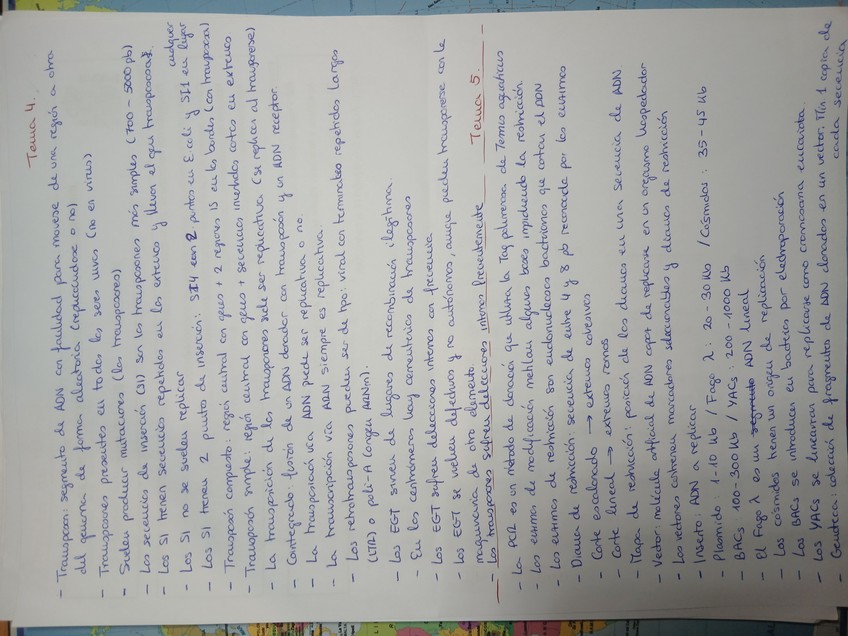 Tema 4.
- Transposon: segmento de ADN con facilidad para moverse de una región a otra
del genoma de forma aleatoria (replicándose o no)
- Transposones presentes en todos los seres vivos (no en virus)
- Suelen producir mutaciones (los transposones)
- Las secuencias de inserción (SI) son los transposones más simples (700-5000 pb)
- Las SI tienen secuencias repetidas en los extremos y llevan el gen transposasa.
- Las SI no se suelen replicar
- Las SI tienen 2 puntos de inserción: SI4 con 2 puntos en E.coli y SI1 en cualquier lugar
- Transposón compuesto: región central con genes + 2 regiones IS en los bordes (con transposasa)
- Transposón simple: región central con genes + secuencias invertidas cortas en extremos
- La transposición de los transposones suele ser replicativa (se replican al transponerse)
- Cointegrado: fusión de un ADN donador con transposón y un ADN receptor.
- La transposición vía ADN puede ser replicativa o no.
- La transcripción vía ARN siempre es replicativa.
- Los retrotransposones pueden ser de tipo: viral con terminales repetidos largos
(LTR) o poli-A (origen ARNm).
- Los EGT sirven de lugares de recombinación ilegítima.
- En los centrómeros hay cementerios de transposones
- Los EGT sufren delecciones internas con frecuencia
- Los EGT se vuelven defectivos y no autónomos, aunque pueden transponerse con la
maquinaria de otro elemento
- Los transposones sufren delecciones internas frecuentemente
Tema 5.
- La PCR es un método de clonación que utiliza la Taq polimerasa de Termus aquaticus
- Las enzimas de modificación metilan algunas bases impidiendo la restricción.
- Las enzimas de restricción son endonucleasas bacterianas que cortan el ADN
- Diana de restricción: secuencia de entre 4 y 8 pb reconocida por las enzimas
- Corte escalonado → extremos cohesivos
- Corte lineal → extremos romos
- Mapa de restricción: posición de las dianas en una secuencia de ADN.
- Vector: molécula artificial de ADN capaz de replicarse en un organismo hospedador
- Los vectores contienen marcadores seleccionables y dianas de restricción
- Inserto: ADN a replicar
- Plásmido: 1-10 Kb / Fago λ: 20-30 Kb / Cósmidos: 35-45 Kb
- BACs 100-300 Kb / YACs: 200-1000 Kb
- El Fago λ es un segmento ADN lineal
- Los cósmidos tienen un origen de replicación
- Los BACs se introducen en bacterias por electroporación
- Los YACs se linearizan para replicarse como cromosoma eucariota.
- Genoteca: colección de fragmentos de ADN clonados en un vector. Mín 1 copia de
cada secuencia